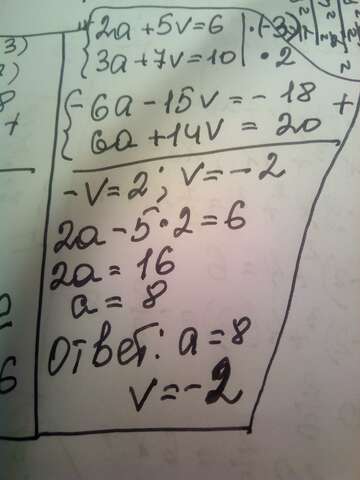 2a + 5v = 6 | · (-3)
3a + 7v = 10 | · 2
-6a - 15v = -18 +
6a + 14v = 20
-v = 2; v = -2
2a - 5 · 2 = 6
2a = 16
a = 8
Ответ: a = 8
v = -2